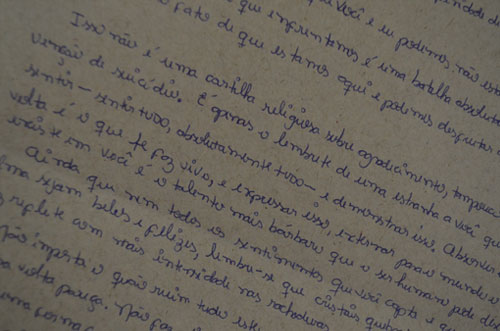 que você e eu podemos não esta
que enfrentamos é uma batalha absoluta
fato de que estamos aqui e podemos desfrutar
Isso não é uma cartilha religiosa sobre agradecimento, tampouco
venção de suicídio. É apenas o lembrete de uma estranha a você que
sentir – sentir tudo, absolutamente tudo – e demonstrar isso. Absorver
volta é o que te faz vivo, e expressar isso, externar para o mundo
existe em você é o talento mais bárbaro que o ser humano pode
Ainda que nem todos os sentimentos que você capta e que
sejam belos e felizes, lembre-se que cristais
reflete com mais intensidade nas rachaduras
Não importa o quão ruim tudo este
volta pareça. Não faz
uma forma